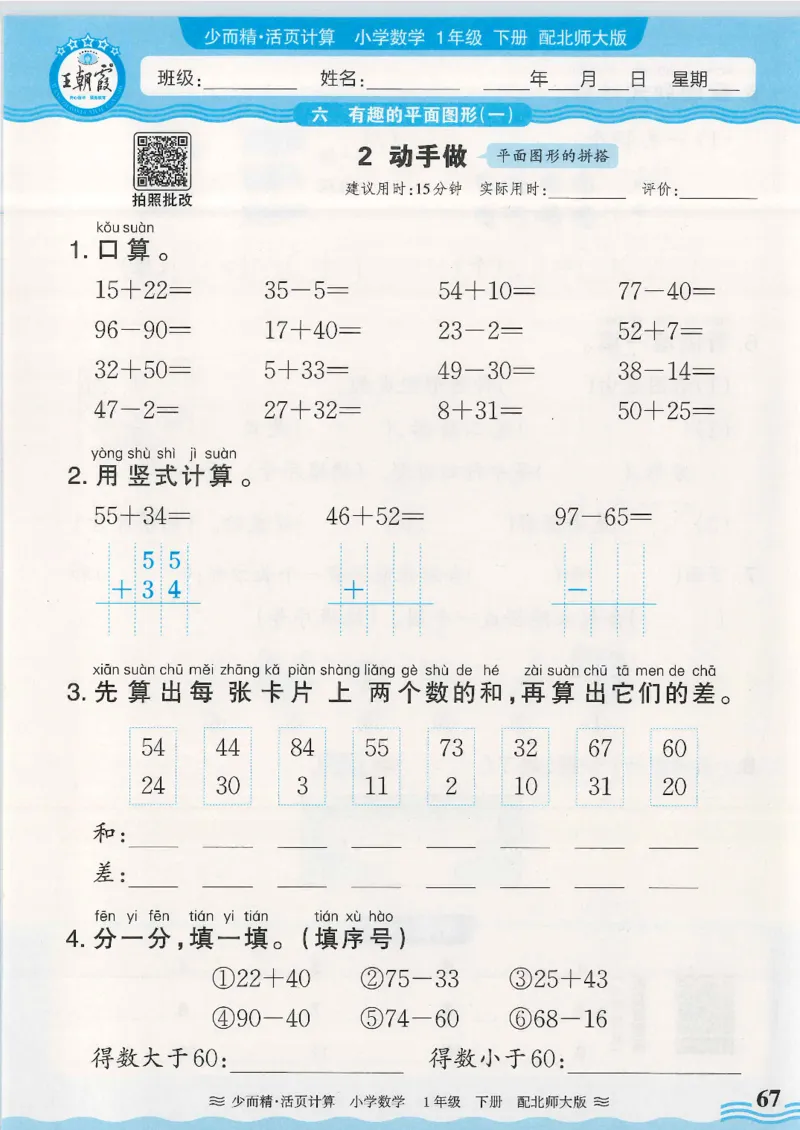 少而精·活页计算 小学数学 1年级 下册 配北师大版
王朝霞
班级:________ 姓名:________ ____年__月__日 星期___
六 有趣的平面图形(一)
拍照批改
2 动手做 平面图形的拼搭
建议用时:15分钟 实际用时:________ 评价:________
kǒu suàn
1. 口算。
15+22= 35-5= 54+10= 77-40=
96-90= 17+40= 23-2= 52+7=
32+50= 5+33= 49-30= 38-14=
47-2= 27+32= 8+31= 50+25=
yòng shù shì jì suàn
2. 用竖式计算。
55+34= 46+52= 97-65=
5 5
+ 3 4 + -
xiān suàn chū měi zhāng kǎ piàn shàng liǎng gè shù de hé zài suàn chū tā men de chā
3. 先算出每张卡片上两个数的和,再算出它们的差。
54 44 84 55 73 32 67 60
24 30 3 11 2 10 31 20
和:____ ____ ____ ____ ____ ____ ____ ____
差:____ ____ ____ ____ ____ ____ ____ ____
fēn yi fēn tián yi tián tián xù hào
4. 分一分,填一填。(填序号)
①22+40 ②75-33 ③25+43
④90-40 ⑤74-60 ⑥68-16
得数大于60:____________ 得数小于60:____________
少而精·活页计算 小学数学 1年级 下册 配北师大版
67